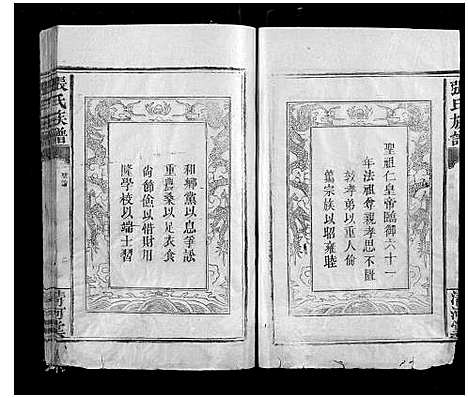 張氏族譜
聖祖仁皇帝臨御六十一
年法祖尊親孝思不匱
敦孝弟以重人倫
篤宗族以昭雍睦
清河堂
和鄉黨以息爭訟
重農桑以足衣食
尚節儉以惜財用
隆學校以端士習
張氏族譜
清河堂